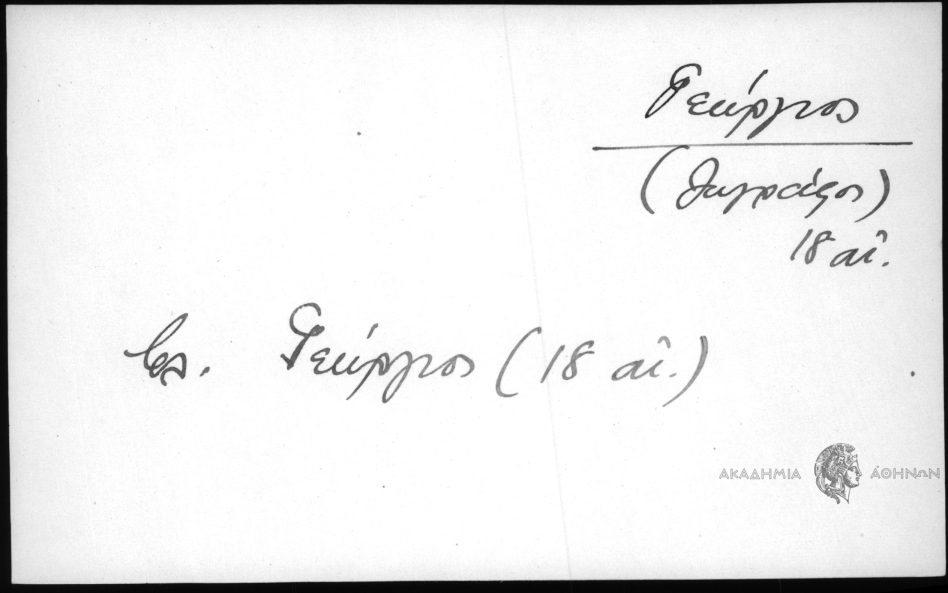 Γεώργιος
(ζωγράφος)
18 αἰ.
βλ. Γεώργιος (18 αἰ.)
ΑΚΑΔΗΜΙΑ ΑΘΗΝΩΝ